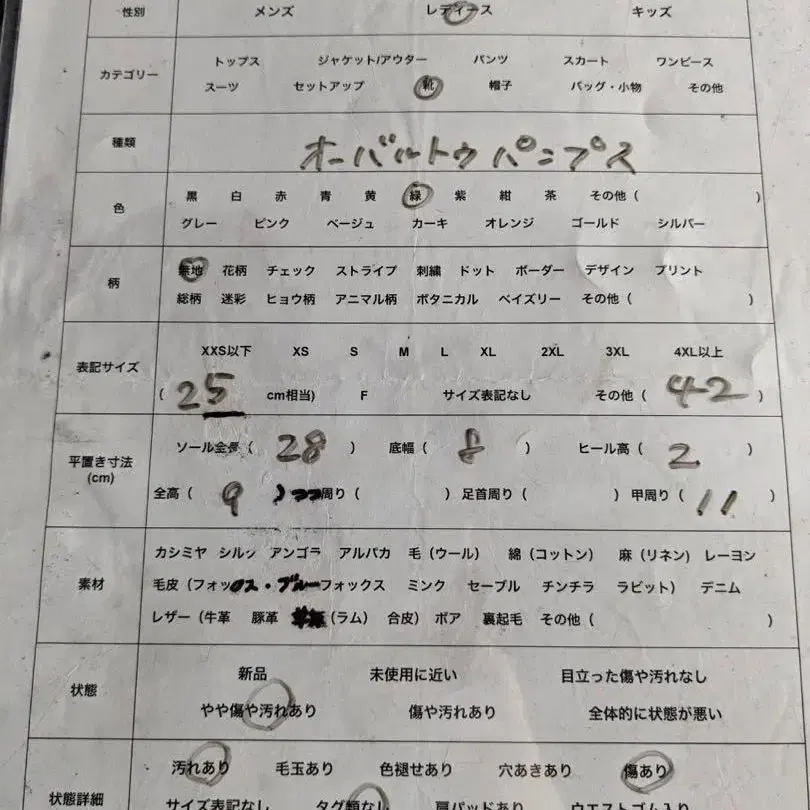 性別 メンズ レディース キッズ
カテゴリー
トップス ジャケット/アウター パンツ スカート ワンピース
スーツ セットアップ 靴 帽子 バッグ・小物 その他
種類 オーバルトウ パンプス
色
黒 白 赤 青 黄 緑 紫 紺 茶 その他( )
グレー ピンク ベージュ カーキ オレンジ ゴールド シルバー
柄
無地 花柄 チェック ストライプ 刺繍 ドット ボーダー デザイン プリント
総柄 迷彩 ヒョウ柄 アニマル柄 ボタニカル ペイズリー その他( )
表記サイズ
XXS以下 XS S M L XL 2XL 3XL 4XL以上
( 25 cm相当) F サイズ表記なし その他( 42 )
平置き寸法
(cm)
ソール全長( 28 ) 底幅( 8 ) ヒール高( 2 )
全高( 9 ) 周り( ) 足首周り( ) 甲周り( 11 )
素材
カシミヤ シルク アンゴラ アルパカ 毛(ウール) 綿(コットン) 麻(リネン) レーヨン
毛皮(フォックス・ブルーフォックス ミンク セーブル チンチラ ラビット) デニム
レザー(牛革 豚革 (ラム) 合皮) ボア 裏起毛 その他( )
状態
新品 未使用に近い 目立った傷や汚れなし
やや傷や汚れあり 傷や汚れあり 全体的に状態が悪い
状態詳細
汚れあり 毛玉あり 色褪せあり 穴あきあり 傷あり
サイズ表記なし タグ類なし 肩パッドあり ウエストゴム入り